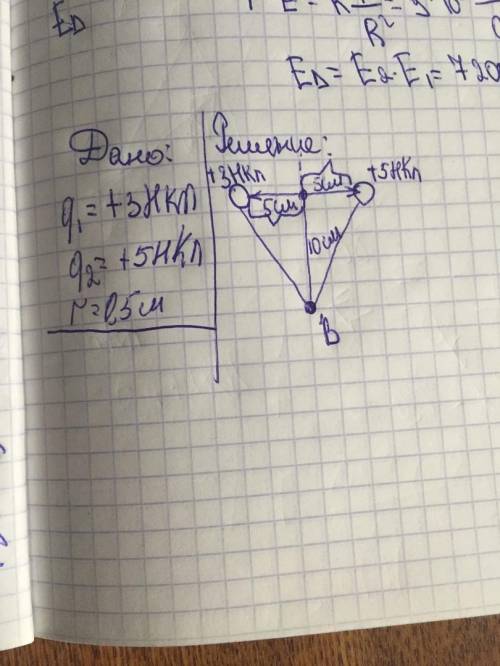 E_D
E = K
R²
= 9·10
E_D = E₂·E₁ = 720
Дано:
q₁ = +3нКл
q₂ = +5нКл
Решение:
+3нКл
5см
+5нКл
5см
10см
B